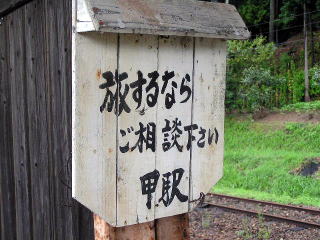 旅するなら
ご相談下さい
甲駅